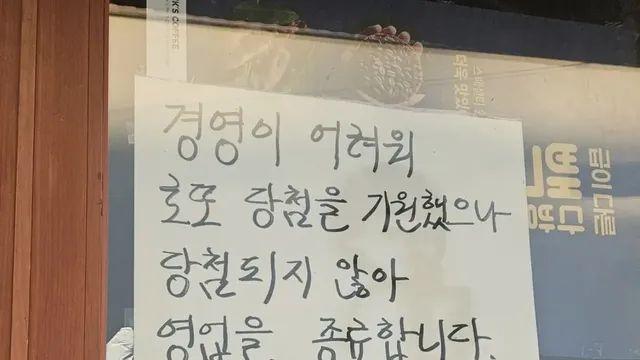 K'S COFFEE
경영이 어려워
로또 당첨을 기원했으나
당첨되지 않아
영업을. 종료합니다.
더욱 맛있
급이 다른
빽다방